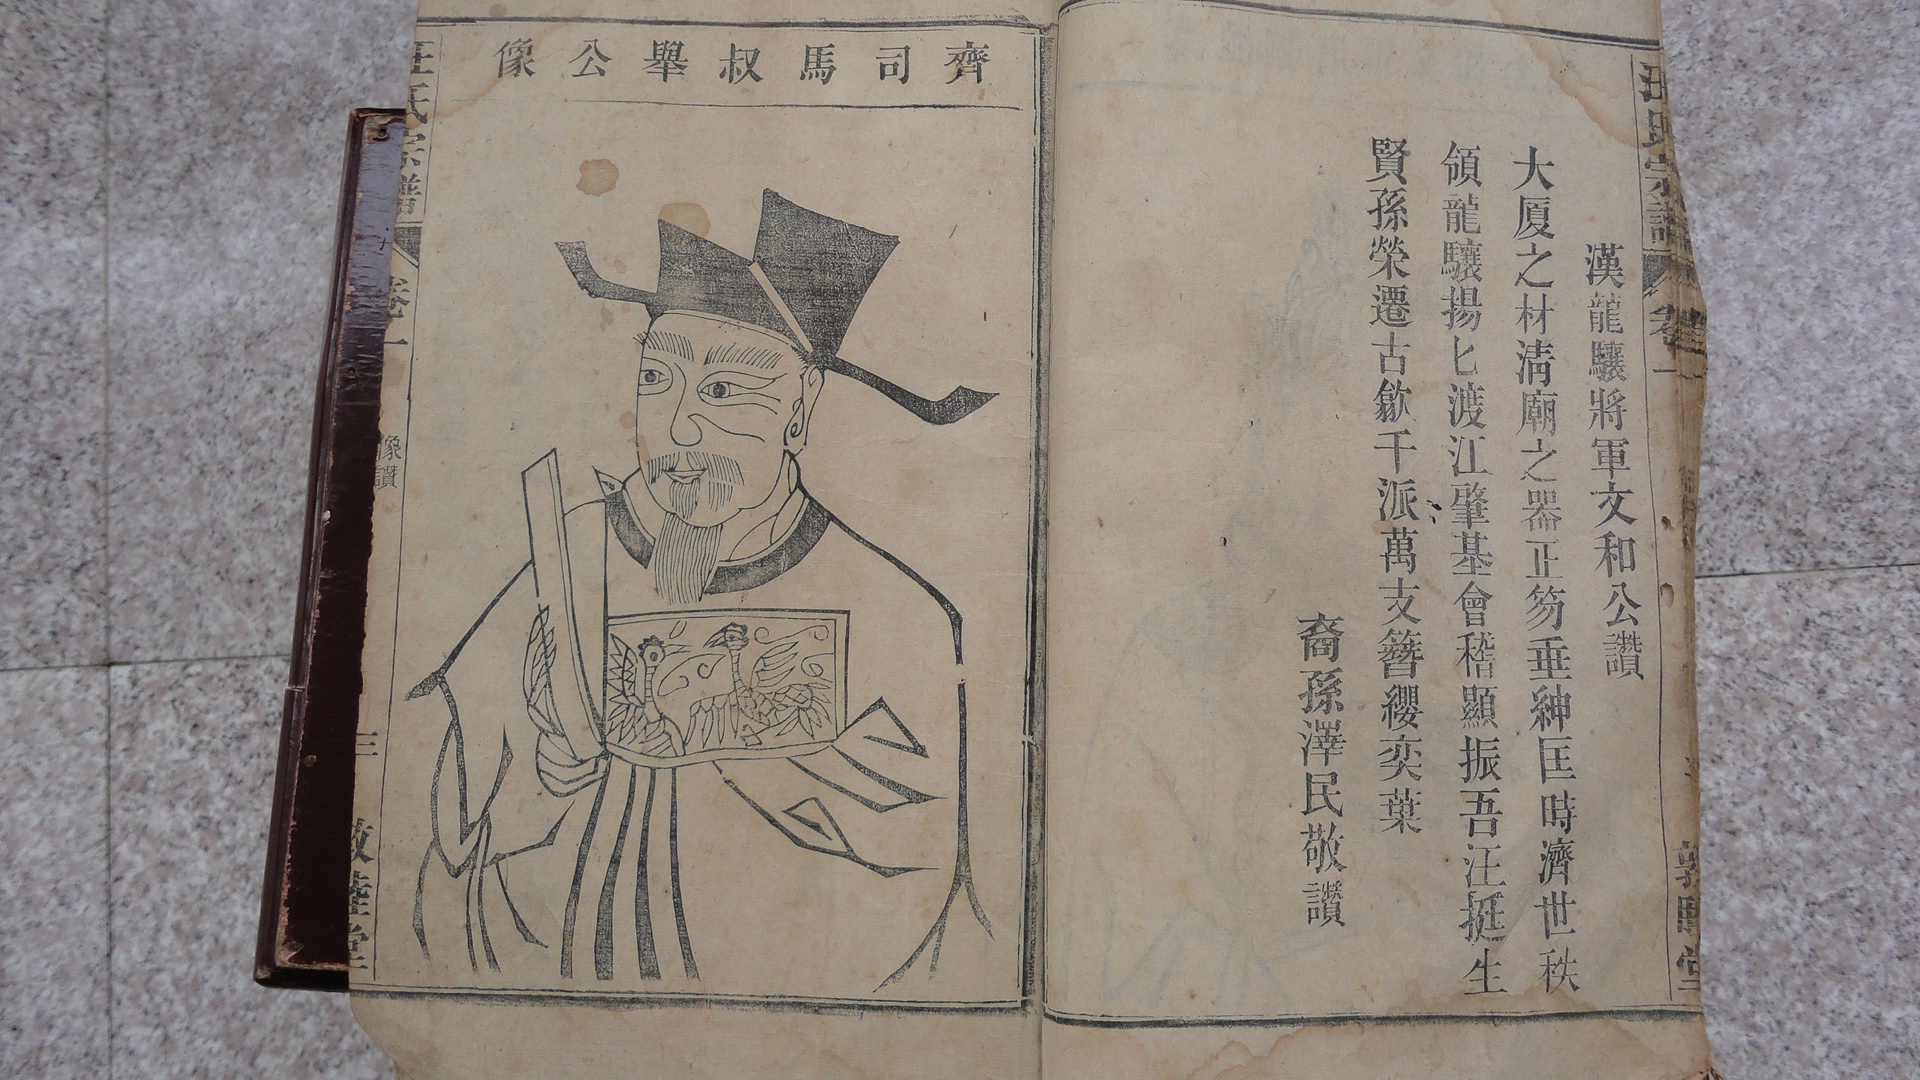 漢龍驤將軍文和公讚
大厦之材淸廟之器正笏垂紳匡時濟世秩
領龍驤揚匕渡江肇基會稽顯振吾汪挺生
賢孫榮遷古歙千派萬支簪纓奕葉
裔孫澤民敬讚
汪氏宗譜
卷一
敦睦堂
齊司馬叔舉公像
汪氏宗譜
卷一
像讚
三
敦睦堂